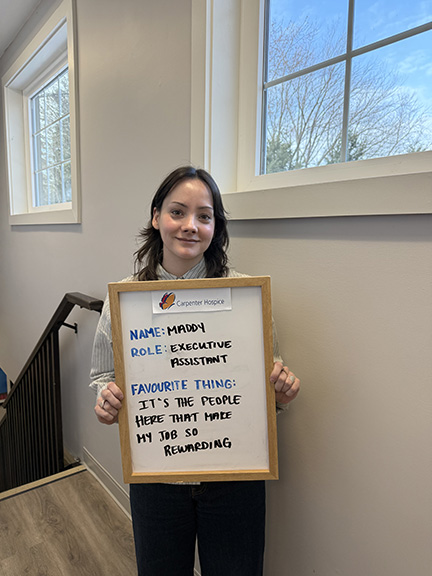 Carpenter Hospice
NAME: MADDY
ROLE: EXECUTIVE
ASSISTANT
FAVOURITE THING:
IT'S THE PEOPLE
HERE THAT MAKE
MY JOB SO
REWARDING